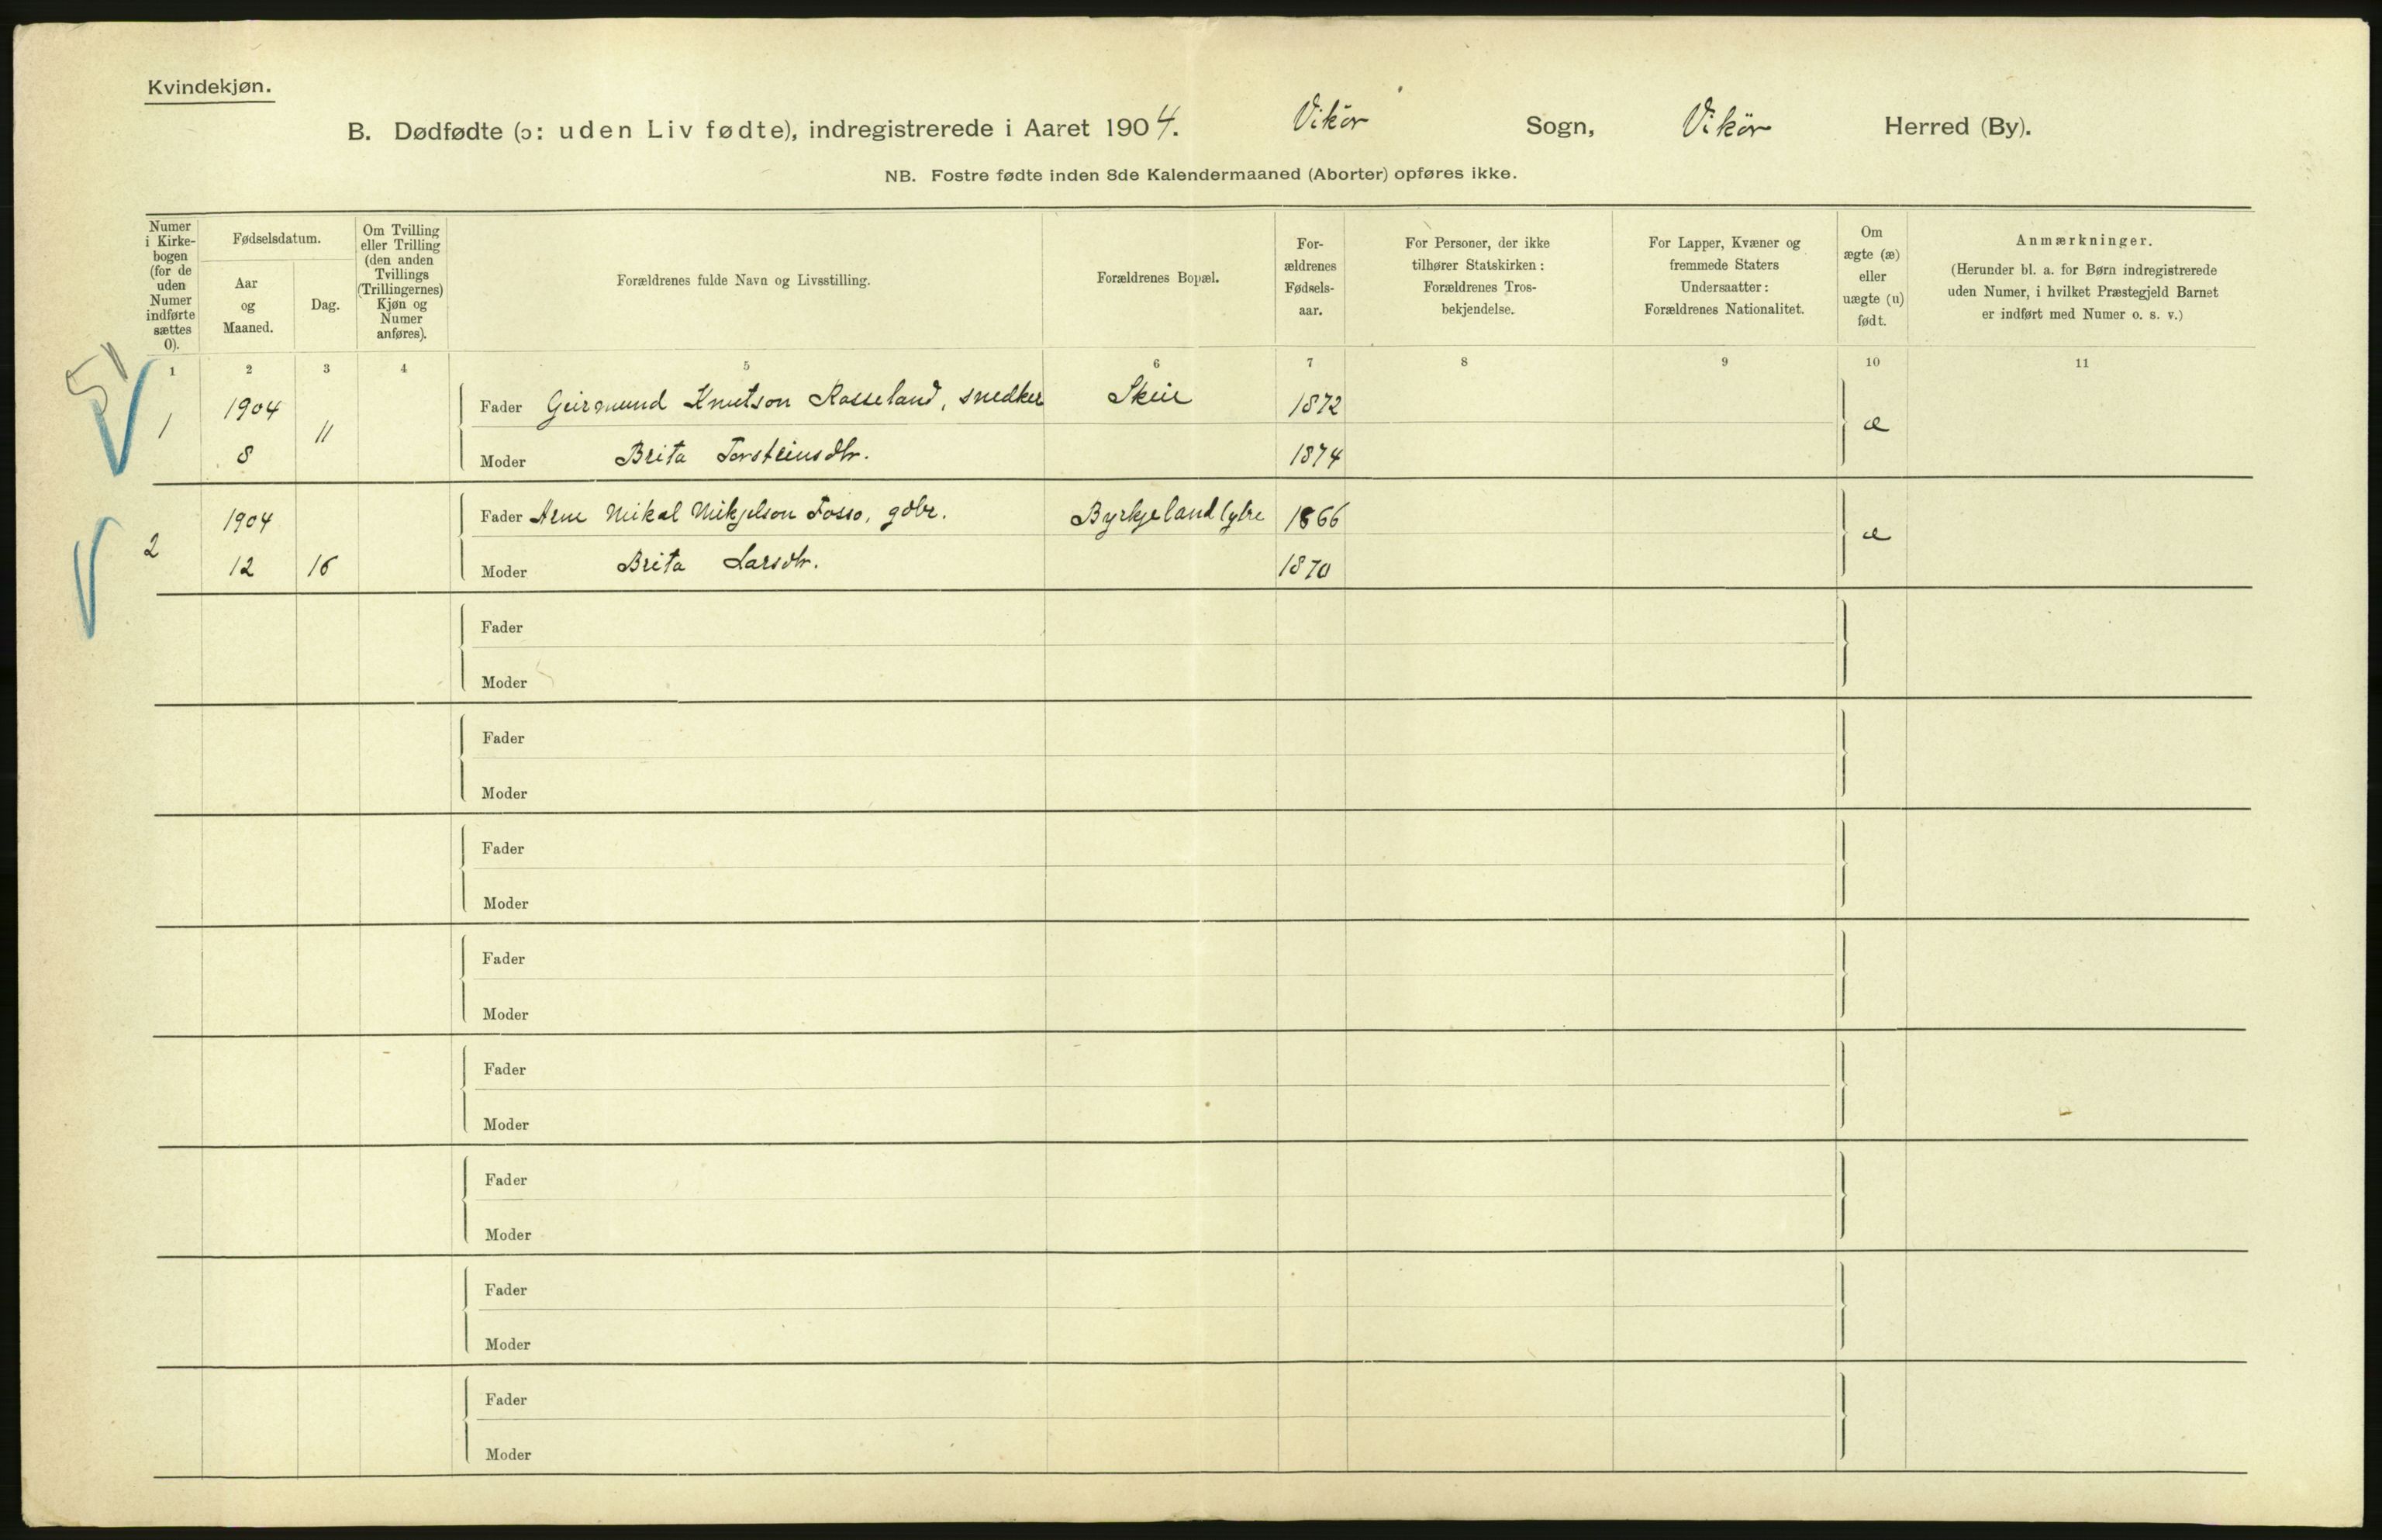 Kvindekjøn.
B. Dødfødte (ɔ: uden Liv fødte), indregistrerede i Aaret 1904. Vikör Sogn, Vikör Herred (By).
NB. Fostre fødte inden 8de Kalendermaaned (Aborter) opføres ikke.
Numer
i Kirke-
bogen
(for de
uden
Numer
indførte
sættes
0).
Fødselsdatum.
Aar
og
Maaned.
Dag.
Om Tvilling
eller Trilling
(den anden
Tvillings
(Trillingernes)
Kjøn og
Numer
anføres).
Forældrenes fulde Navn og Livsstilling.
Forældrenes Bopæl.
For-
ældrenes
Fødsels-
aar.
For Personer, der ikke
tilhører Statskirken:
Forældrenes Tros-
bekjendelse.
For Lapper, Kvæner og
fremmede Staters
Undersaatter:
Forældrenes Nationalitet.
Om
ægte (æ)
eller
uægte (u)
født.
Anmærkninger.
(Herunder bl. a. for Børn indregistrerede
uden Numer, i hvilket Præstegjeld Barnet
er indført med Numer o. s. v.)
1 2 3 4 5 6 7 8 9 10 11
1 1904 8 11 Fader Geirmund Knutson Rosseland, snedker Skeie 1872 æ
Moder Brita Torsteinsdtr. 1874
2 1904 12 16 Fader Arne Mikal Mikjelson Fosso, gdbr. Byrkjeland 1866 æ
Moder Brita Larsdtr. 1870
Fader
Moder
Fader
Moder
Fader
Moder
Fader
Moder
Fader
Moder
Fader
Moder
Fader
Moder
Fader
Moder